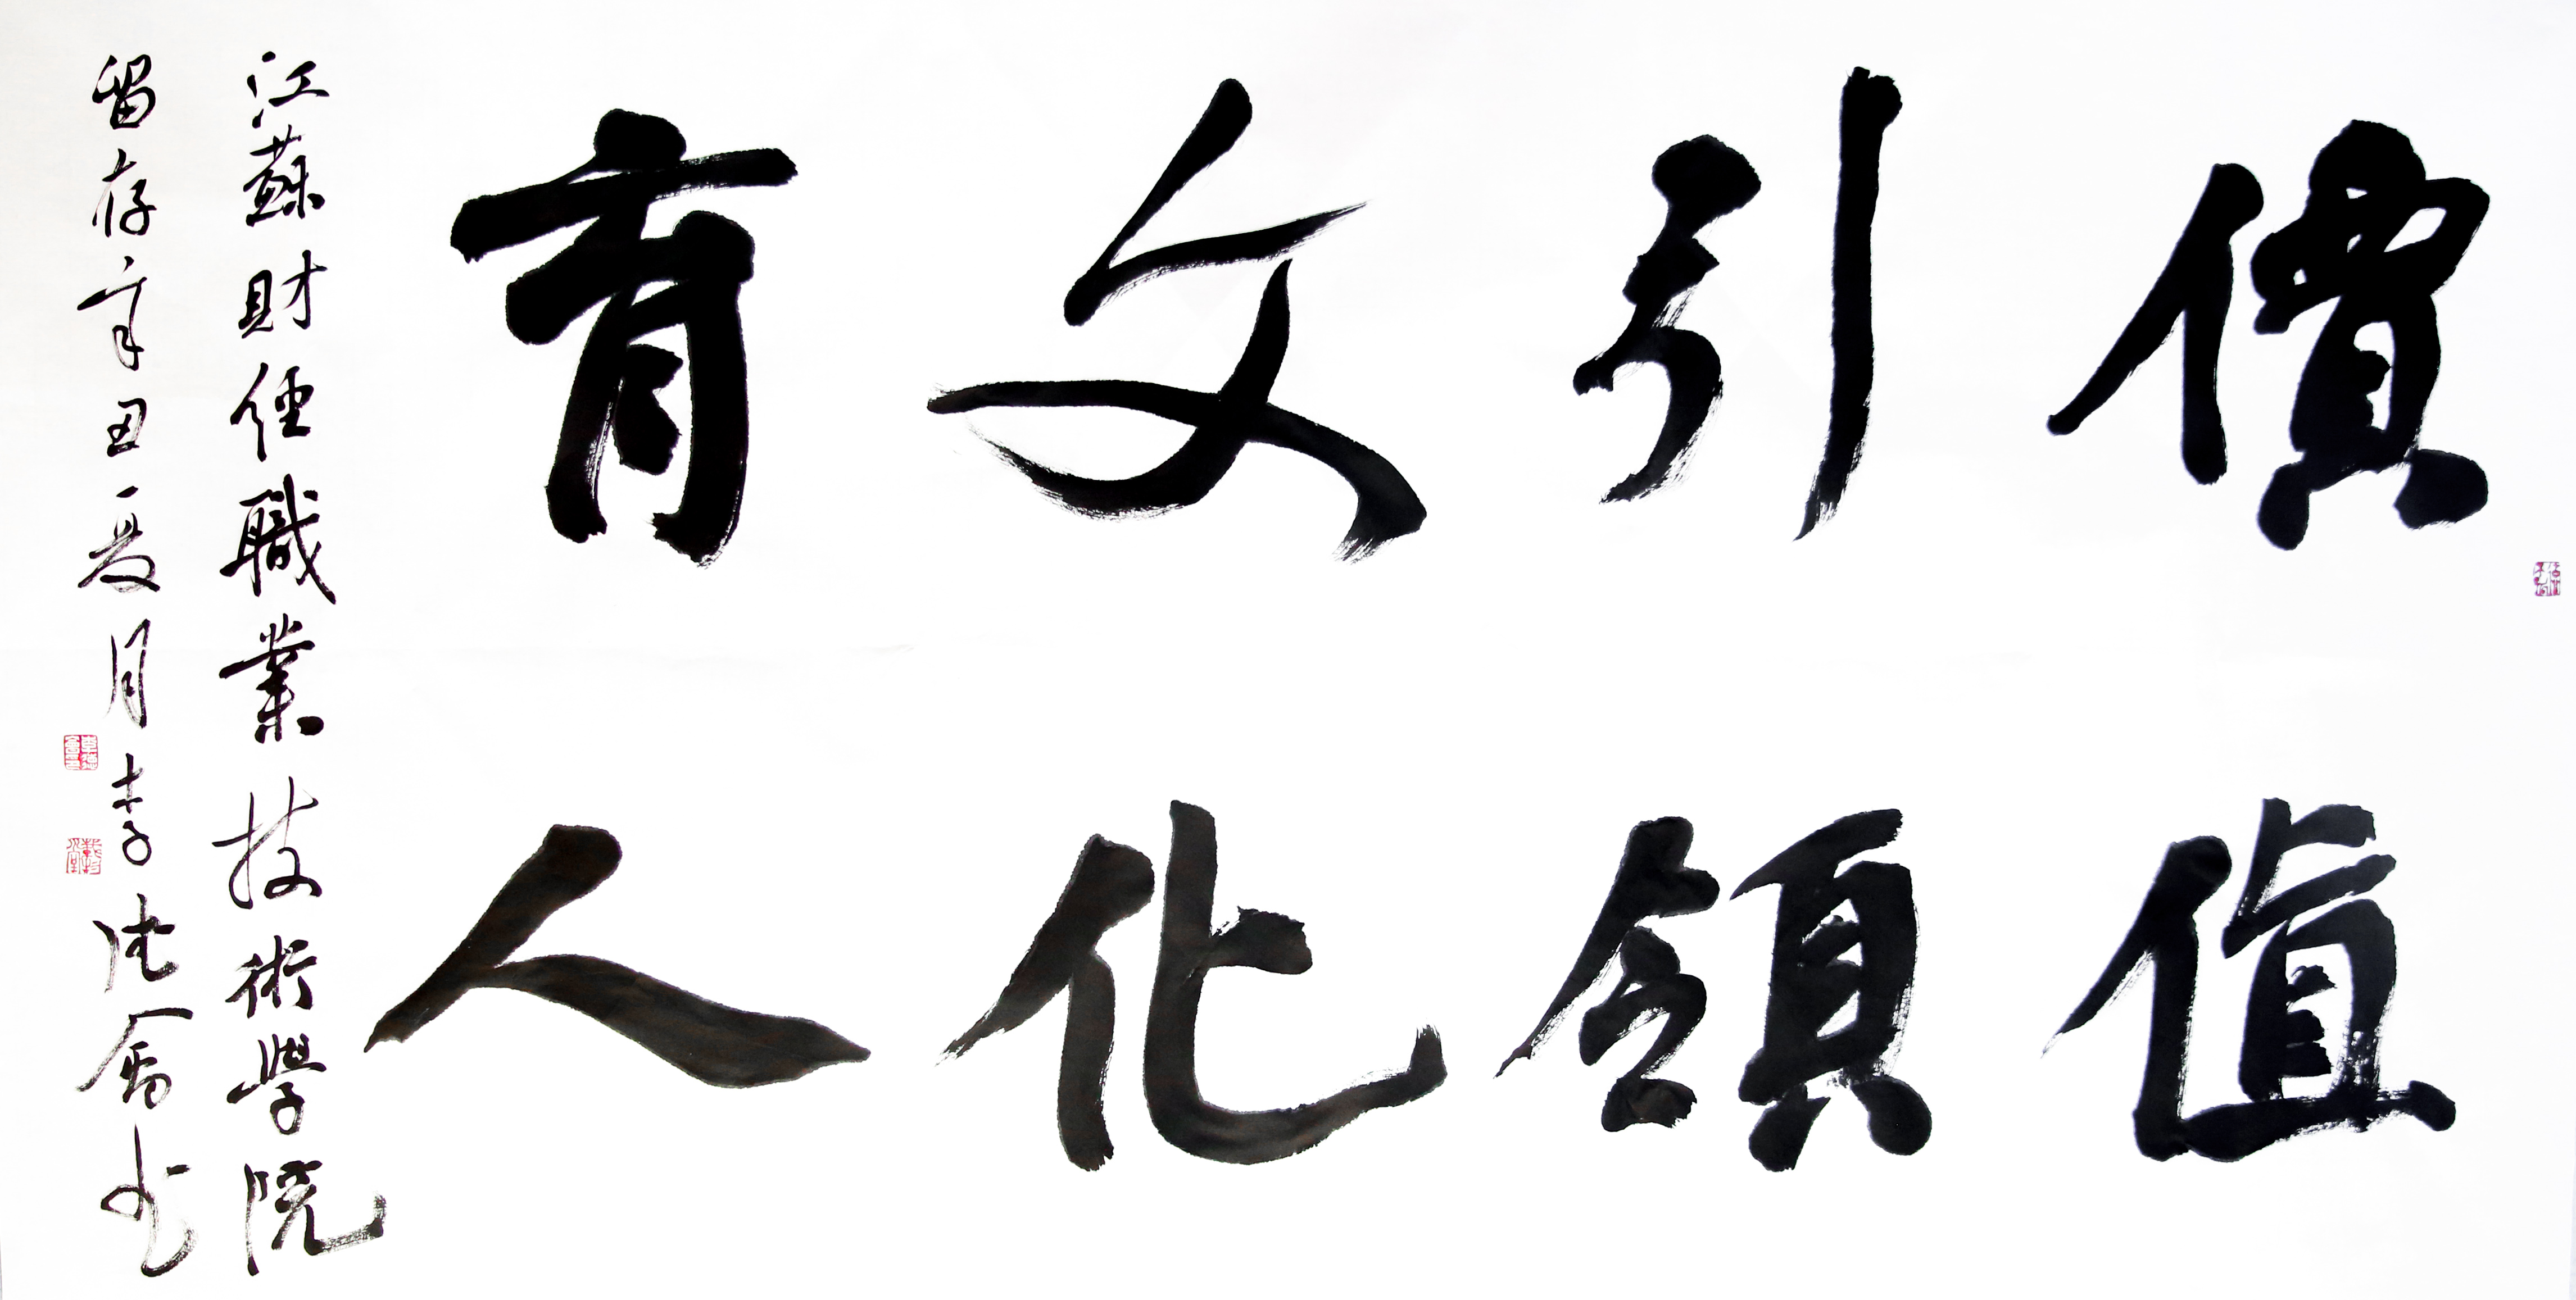 價值
引領
文化
育人
江蘇財經職業技術學院
留存辛丑夏月李